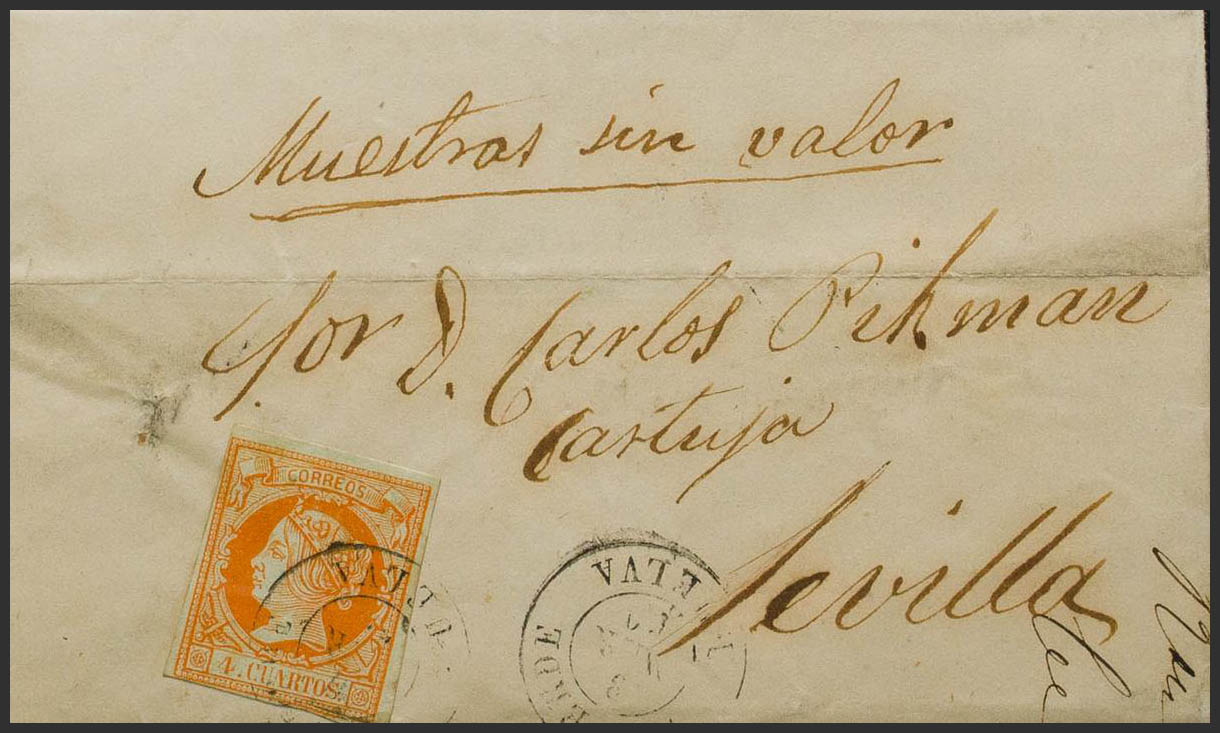 Muestras sin valor
Sor D. Carlos Pikman
Cartuja
Sevilla
CORREOS
4 CUARTOS